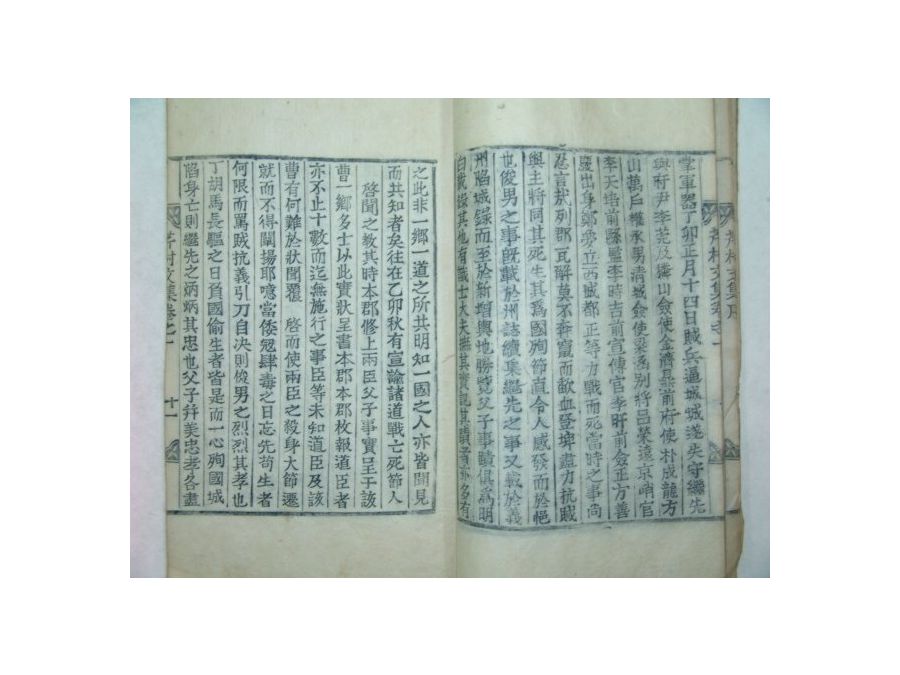 掌軍器丁卯正月十四日賊兵逼城城遂失守繼先
與府尹李莞及 山僉使金濟 前府使朴成龍方
山萬戶 永男清城僉使 別將呂榮遠京哨官
李天 前縣監李時 前宣傳官李 前僉正方善
慶出身鄭夢立西 都正等力戰而死當時之事尚
忍言哉列郡瓦解莫不奔竄而歃血登埤盡力抗賊
與主將同其死生其爲國殉節直令人感發而於悒
也俊男之事旣載於州誌續集繼先之事又載於義
州陷城錄而至於新增輿地勝覽父子事蹟俱爲明
白載錄其他有識士大夫 其實記其蹟者亦多有
之此非一鄕一道之所共明知一國之人亦皆聞見
而共知者矣往在乙卯秋有宣諭諸道戰亡死節人
啓聞之教其時本郡修上兩臣父子事實呈于該
曹一鄕多士以此實狀呈書本郡本郡枚報道臣者
亦不止十數而迄無施行之事臣等未知道臣及該
曹有何難於狀聞覆 啓而使兩臣之殺身大節遷
就而不得闡揚耶噫當倭寇肆毒之日忘先苟生者
何限而罵賊抗義引刀自決則俊男之烈烈其孝也
丁胡馬長驅之日負國偷生者皆是而一心殉國城
陷身亡則繼先之炳炳其忠也父子幷美忠孝各盡
芹村文集卷之一 十一